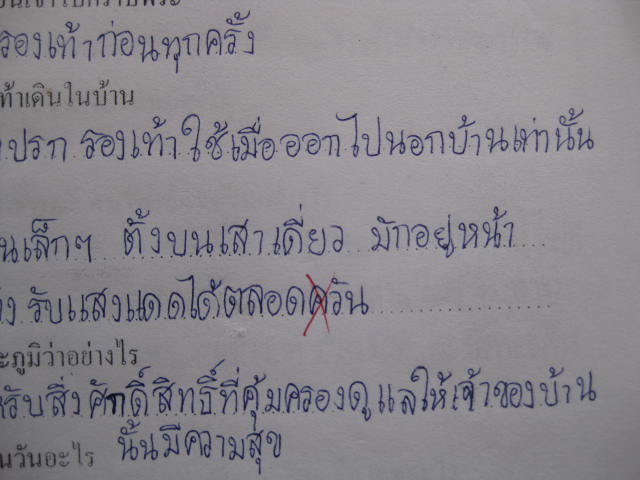 อนเข้าไปกราบพระ
รองเท้าก่อนทุกครั้ง
ท้าเดินในบ้าน
ปรก รองเท้าใช้เมื่อออกไปนอกบ้านเท่านั้น
นเล็กๆ ตั้งบนเสาเดี่ยว มักอยู่หน้า
ง รับแสงแดดได้ตลอดควัน
ะภูมิว่าอย่างไร
หรับสิ่งศักดิ์สิทธิ์ที่คุ้มครองดูแลให้เจ้าของบ้าน
นวันอะไร นั้นมีความสุข